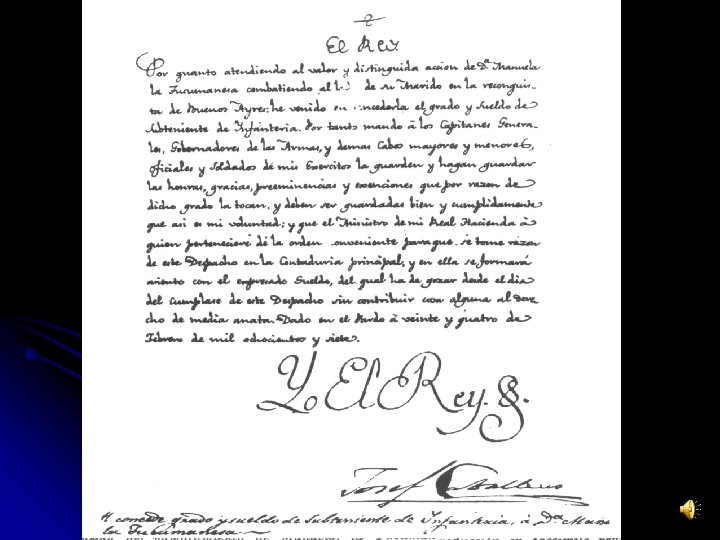 El Rey.
Por quanto atendiendo al valor y distinguida accion de Dª Manuela
la Tucumanesa combatiendo al l de su Marido en la reconquis-
ta de Buenos Ayres; he venido en concederla el grado y Sueldo de
Subteniente de Infanteria. Por tanto mando à los Capitanes Genera-
les, Gobernadores de las Armas, y demas Cabos mayores y menores,
oficiales y Soldados de mis Exercitos la guarden y hagan guardar
las honras, gracias, preeminencias y exenciones que por razon de
dicho grado la tocan, y deben ser guardadas bien y cumplidamente
que asi es mi voluntad; y que el Ministro de mi Real Hacienda à
quien perteneciere dé la orden conveniente para que se tome razon
de este Despacho en la Contaduria principal, y en ella se formará
asiento con el expresado Sueldo, del qual ha de gozar desde el dia
del Cumplase de este Despacho sin contribuir cosa alguna al dere
cho de media anata. Dado en el Pardo à veinte y quatro de
Febrero de mil ochocientos y siete.
Yo El Rey.
Josef Caballero
M concede grado y sueldo de Subteniente de Infanteria, à Dª Manue
la Tucumanesa